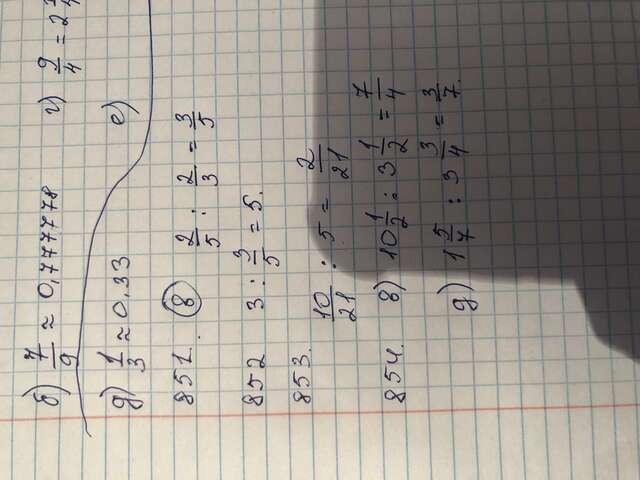 б) 7/9 ≈ 0,7777778 г) 9/4 = 2
д) 1/3 ≈ 0,33 е)
851. 8 2/5 : 2/3 = 3/5
852 3 : 3/5 = 5.
853.
10/21 : 5 = 2/21
854. в) 10 1/2 : 3 1/2 = 7/4
д) 1 5/7 : 3 3/4 = 3/7.